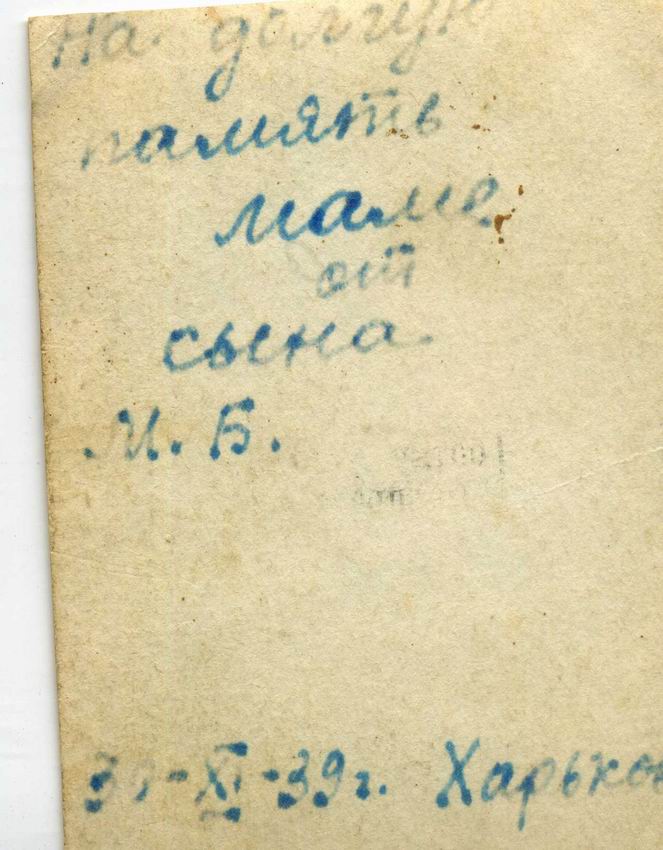 На долгую
память
маме
от
сына
М. Б.
XI-39г. Харьков